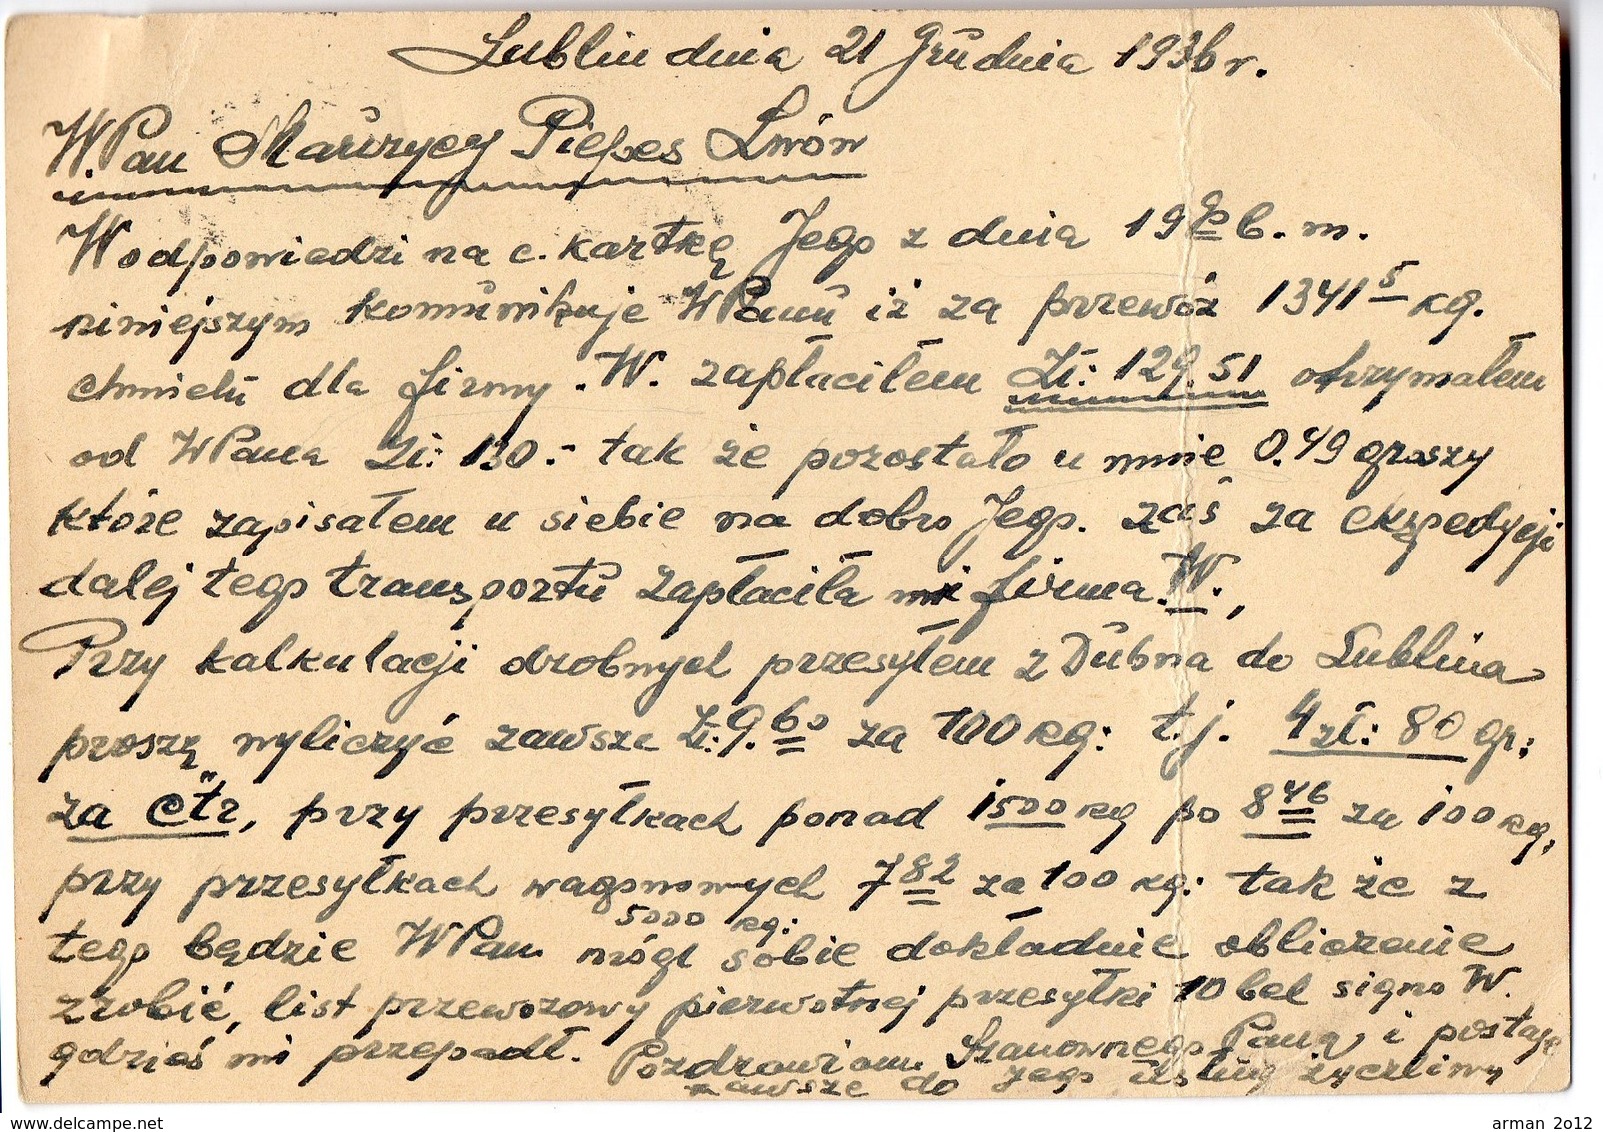 Lublin dnia 21 Grudnia 1936 r.
WPan Maurycy Piepes Lwów
W odpowiedzi na c. kartkę Jego z dnia 19go b. m.
niniejszym komunikuje WPanu iż za przewóz 1341 5 kg.
chmielu dla firmy W. zapłaciłem Zł: 129.51 otrzymałem
od WPana Zł: 130.- tak że pozostało u mnie 0.49 groszy
które zapisałem u siebie na dobro Jego. zaś za ekspedycji
dalej tego transportu zapłaciła mi firma W.,
Przy kalkulacji drobnych przesyłem z Dubna do Lublina
proszę wyliczyć zawsze Zł: 9.60 za 100 kg: t.j. 4 zł: 80 gr;
za ctr, przy przesyłkach ponad 1500 kg po 8 46 za 100 kg,
przy przesyłkach wagonowych 7 82 za 100 kg: tak że z
5000 kg:
tego będzie WPan mógł sobie dokładnie obliczenie
zrobić, list przewozowy pierwotnej przesyłki 10 bel signo W.
gdzieś mi przepadł. Pozdrawiam Szanownego Pana, i postaje
zawsze do Jego usług życzliwy
arman 2012